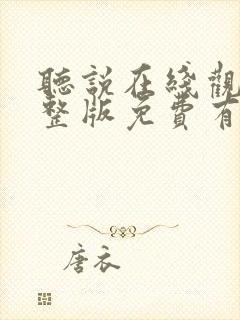 聽說在綫觀
整版免費有
唐衣